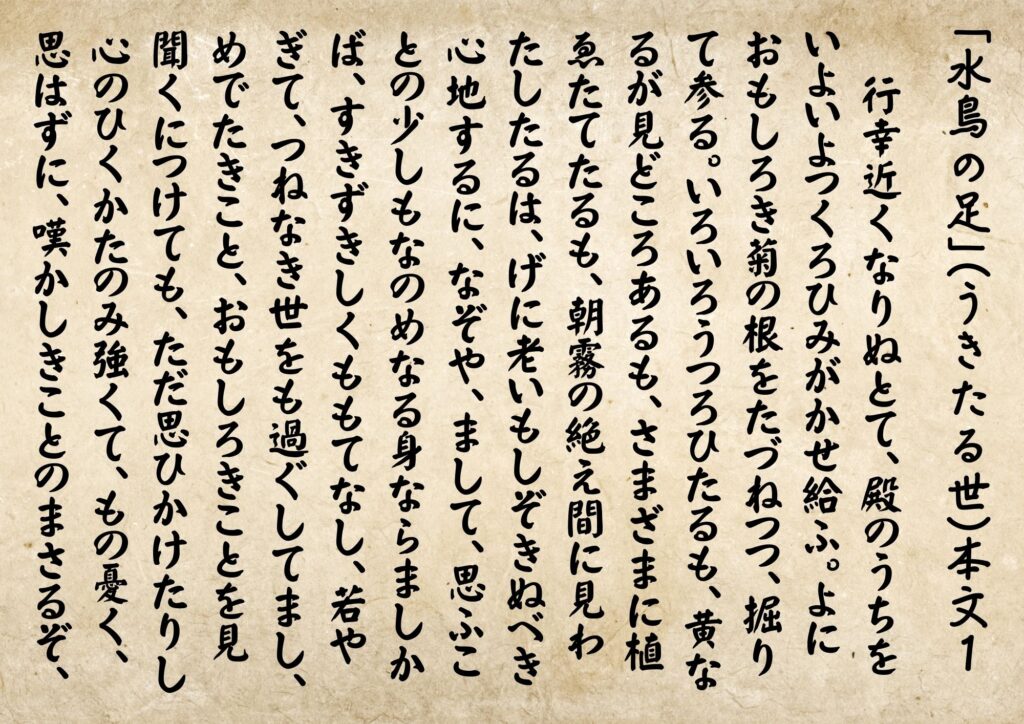 「水鳥の足」(うきたる世)本文1
行幸近くなりぬとて、殿のうちを
いよいよつくろひみがかせ給ふ。よに
おもしろき菊の根をたづねつつ、掘り
て参る。いろいろうつろひたるも、黄な
るが見どころあるも、さまざまに植
ゑたてたるも、朝霧の絶え間に見わ
たしたるは、げに老いもしぞきぬべき
心地するに、なぞや、まして、思ふこ
との少しもなのめなる身ならましか
ば、すきずきしくももてなし、若や
ぎて、つねなき世をも過ぐしてまし、
めでたきこと、おもしろきことを見
聞くにつけても、ただ思ひかけたりし
心のひくかたのみ強くて、もの憂く、
思はずに、嘆かしきことのまさるぞ、